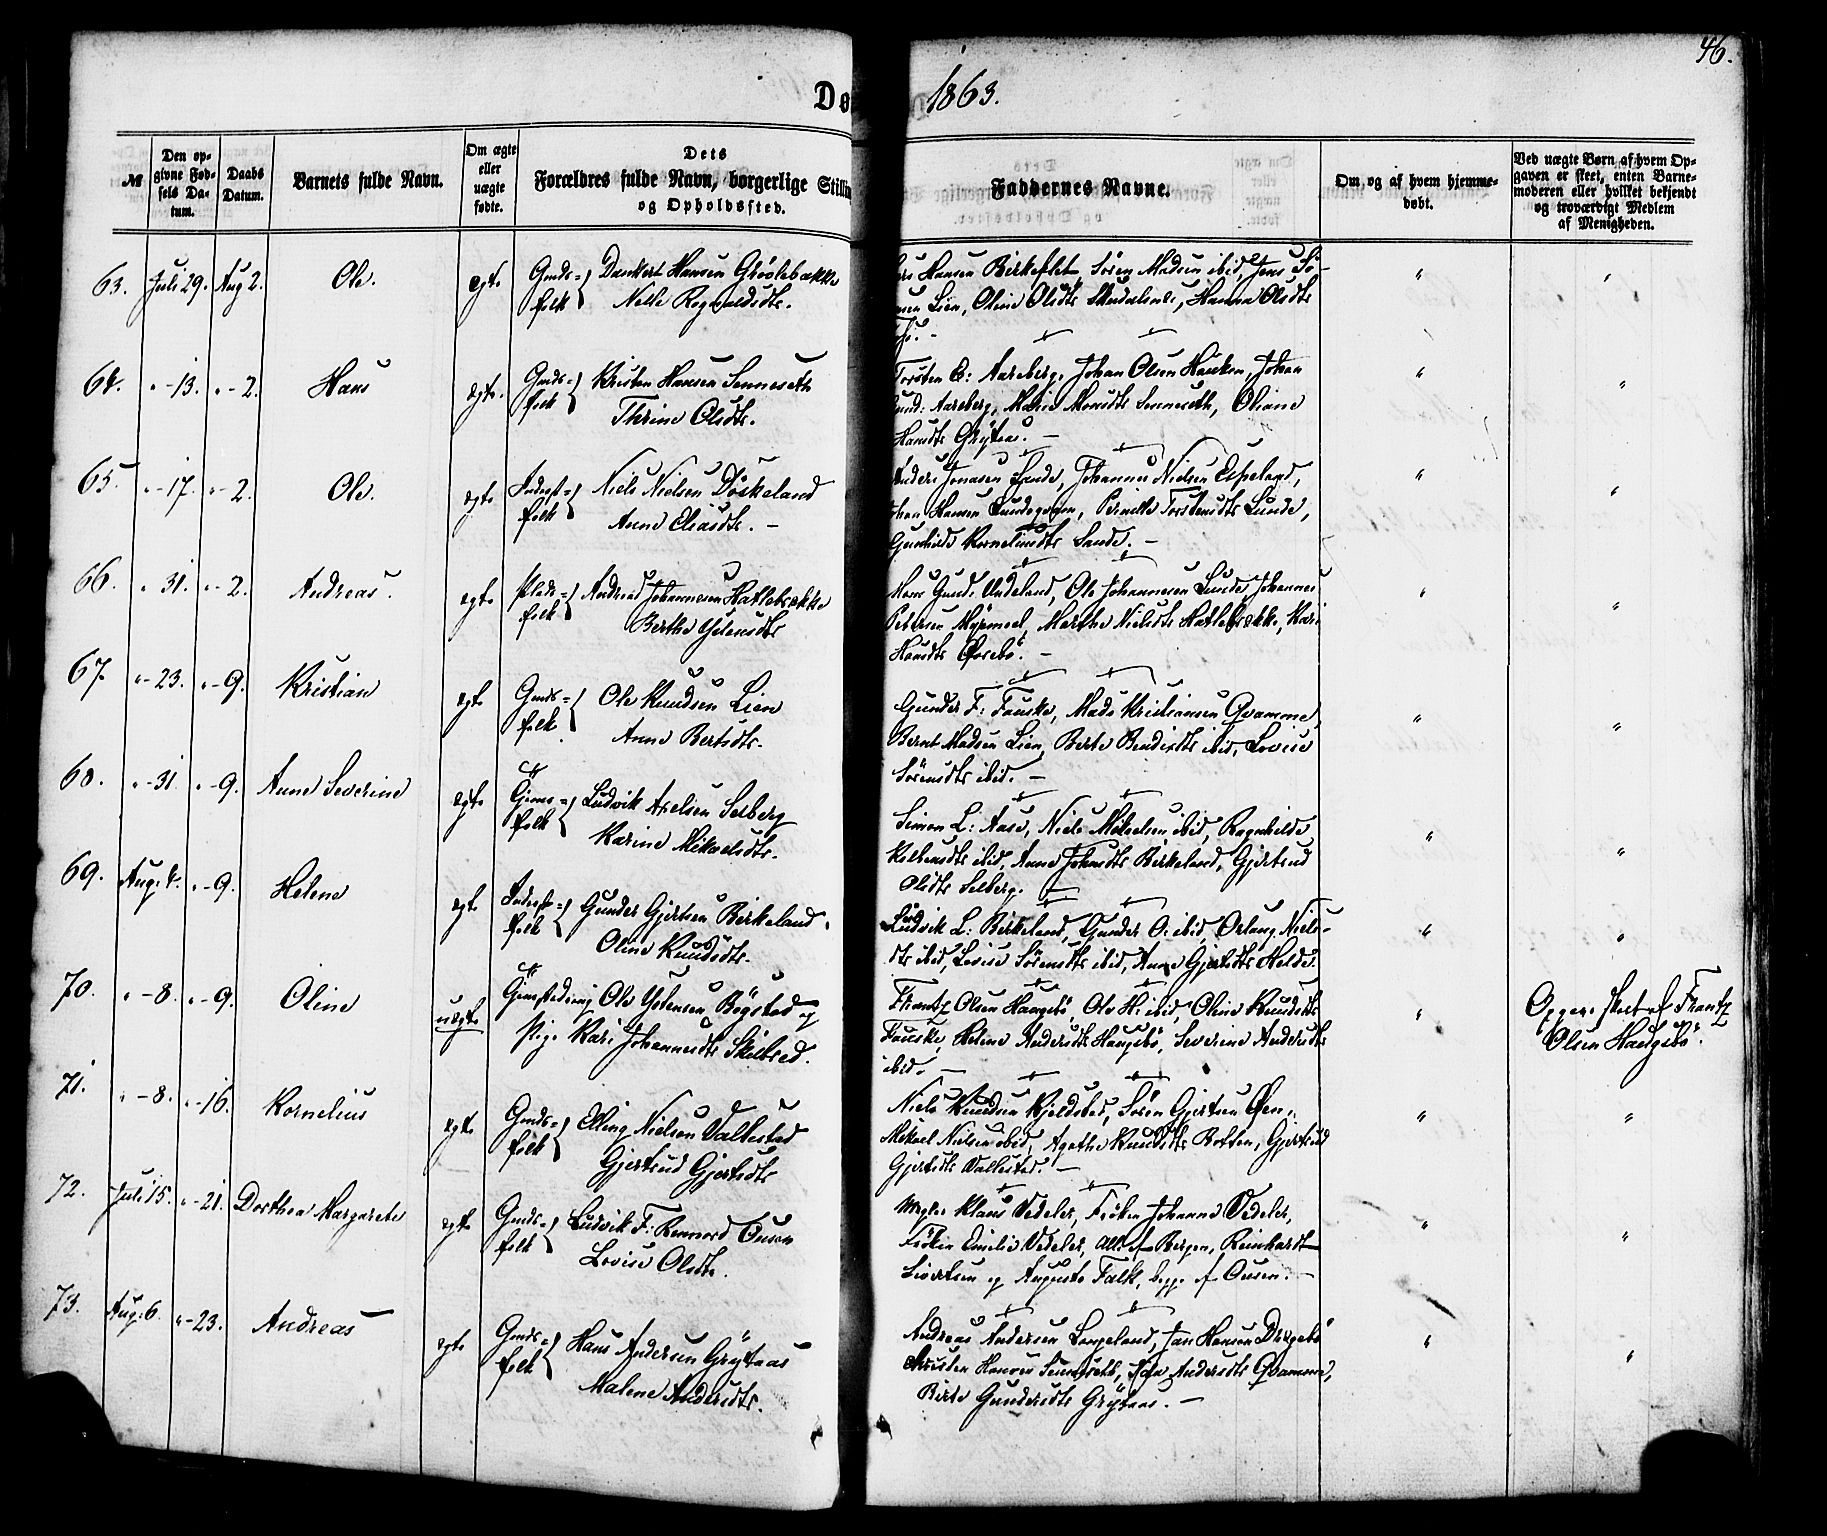 46.
Dø
1863.
№
Den opgivne Fødsels Datum.
Daabs Datum.
Barnets fulde Navn.
Om ægte eller uægte fødte.
Dets Forældres fulde Navn, borgerlige Stilli
og Opholdssted.
Faddernes Navne.
Om og af hvem hjemmedøbt.
Ved uægte Børn af hvem Opgaven er skeet, enten Barnemoderen eller hvilket bekjendt og troværdigt Medlem af Menigheden.
63. Juli 29. Aug 2. Ole. egte Gmds=folk Dankert Hansen
Nelle Ragnvaldsdtr.
Hansen Birkeflet, Sören Madsen ibid, Jens Sö-
Lien, Oline Olsdtr, Hanna Olsdtr
64. "-13. "-2. Hans ægte. Gmds=folk Kristen Hansen Senneseth
Thrine Olsdtr.
Torsten E: Aareberg, Johan Olsen Haukøen, Johan
Gund: Aareberg, Marie Monsdtr Senneseth, Oliane
Hansdtr Grytaas. -
65. "-17. "-2. Ole. egte Inderst=folk Niels Nielsen Döskeland
Anne Eliasdtr. -
Anders Jonasen Sande, Johannes Nielsen Espeland,
Hansen, Pernelle Torstensdtr Lunde,
Gunhilde Korneliusdtr Sande. -
66. "31. "-2. Andreas. egte Plads=folk Andreas Johannesen Hatlebrække
Berthe Ystensdtr
Hans Gund: Undeland, Ole Johannesen Lunde, Johannes
Petersen Myrmel, Marthe Nielsdtr Hatlebrække, Kari
Hansdtr Övrebö. -
67. "-23. "-9. Kristian egte Gmds=folk Ole Knudsen Lien
Anne Berthsdtr.
Gunder F: Fauske, Mads Kristiansen Qvamme,
Bernt Madsen Lien, Berte Bendixdtr ibid, Lovise
Sörensdtr ibid. -
68. "-31. "-9. Anne Severine ægte folk Ludvik Axelsen Selberg
Karine Mikaelsdtr.
Simon L: Aase, Niels Mikkelsen ibid, Ragnhilde
Kolbensdtr ibid, Anne Johnsdtr Birkeland, Gjertrud
Olsdtr Selberg. -
69. Aug. 4. "-9. Helene egte Inderst=folk Gunder Gjertsen Birkeland.
Oline Knudsdtr.
Ludvik L: Birkeland, Gunder O: ibid, Niels-
dtr ibid, Lovise Sörensdtr ibid, Anne Gjertsdtr Helde.
70. "-8. "-9. Oline uægte Ole Ystensen Bögstad og
Pige Kari Johannesdtr Skilbred.
Frantz Olsen Haugsbö, Ole H: ibid, Oline Knudsdtr
Fauske, Helene Andersdtr Haugsbö, Severine Andersdtr
ibid. -
Opgave skeet af Frantz
Olsen Haugsbö.
71. "-8. "-16. Kornelius egte Gmds=folk Elling Nielsen Vallestad
Gjertrud Gjertsdtr
Niels Knudsen Kjeldsbed, Sören Gjertsen Öen,
Mikael Nielsen ibid, Agathe Knudsdtr Botten, Gjertrud
Gjertsdtr Vallestad. -
72. Juli 15. "-21. Dorthea Margarete egte Gmds=folk Ludvik F: Rennord Ousen
Lovise Olsdtr.
Klaus Vedeler, Fröken Johanne Vedeler,
Fröken Emilie Vedeler, alle af Bergen, Reinhardt
Sivertsen og Auguste Falk, begge af Ousen. -
73. Aug: 6. "-23. Andreas egte Gmds=folk Hans Andersen Grytaas
Malene Andersdtr.
Andreas Andersen Langeland, Jan Hansen Dregebö
Kristen Hansen Senneseth, Andersdtr Qvamme,
Berte Gundersdtr Grytaas. -